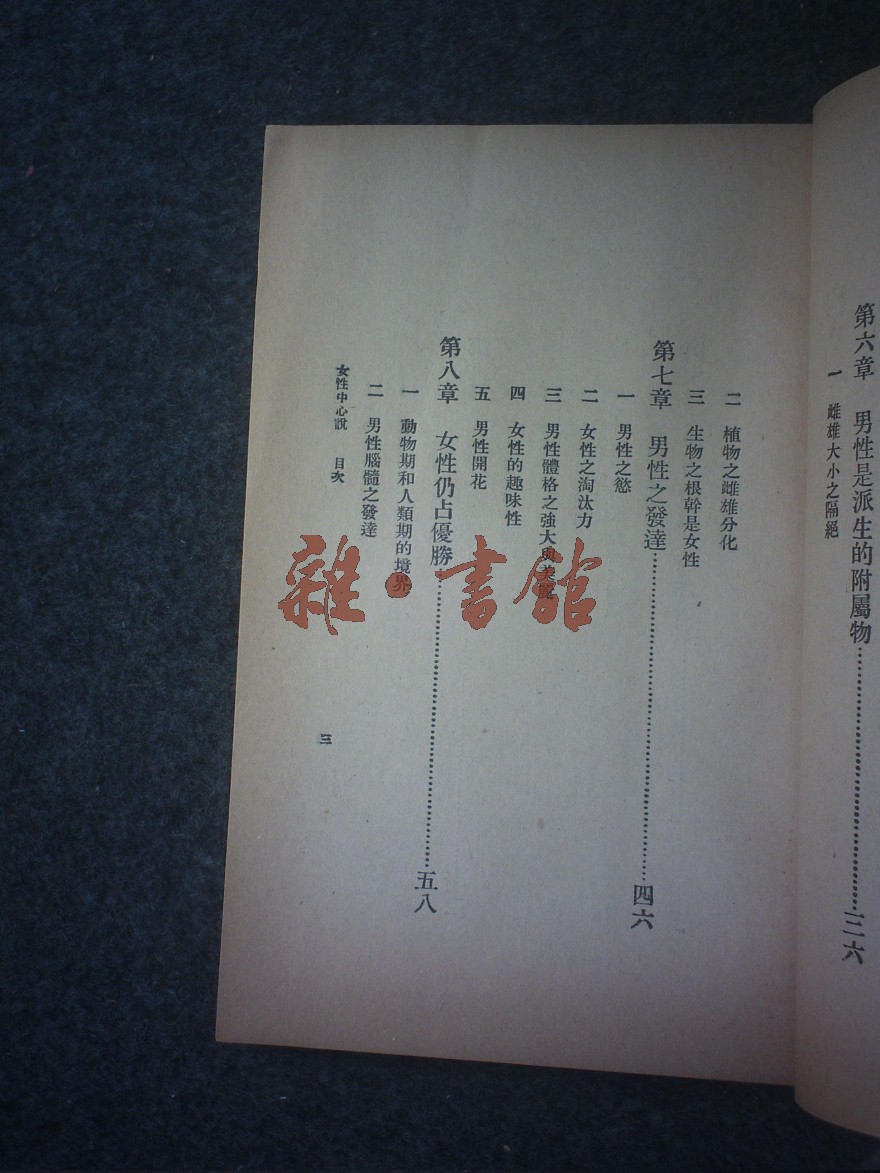 第六章　男性是派生的附屬物……三六
一　雌雄大小之隔絕
二　植物之雌雄分化
三　生物之根幹是女性
第七章　男性之發達……四六
一　男性之慾
二　女性之淘汰力
三　男性體格之強大與美麗
四　女性的趣味性
五　男性開花
第八章　女性仍占優勝……五八
一　動物期和人類期的境界
二　男性腦髓之發達
女性中心說　目次
三
雜·書館